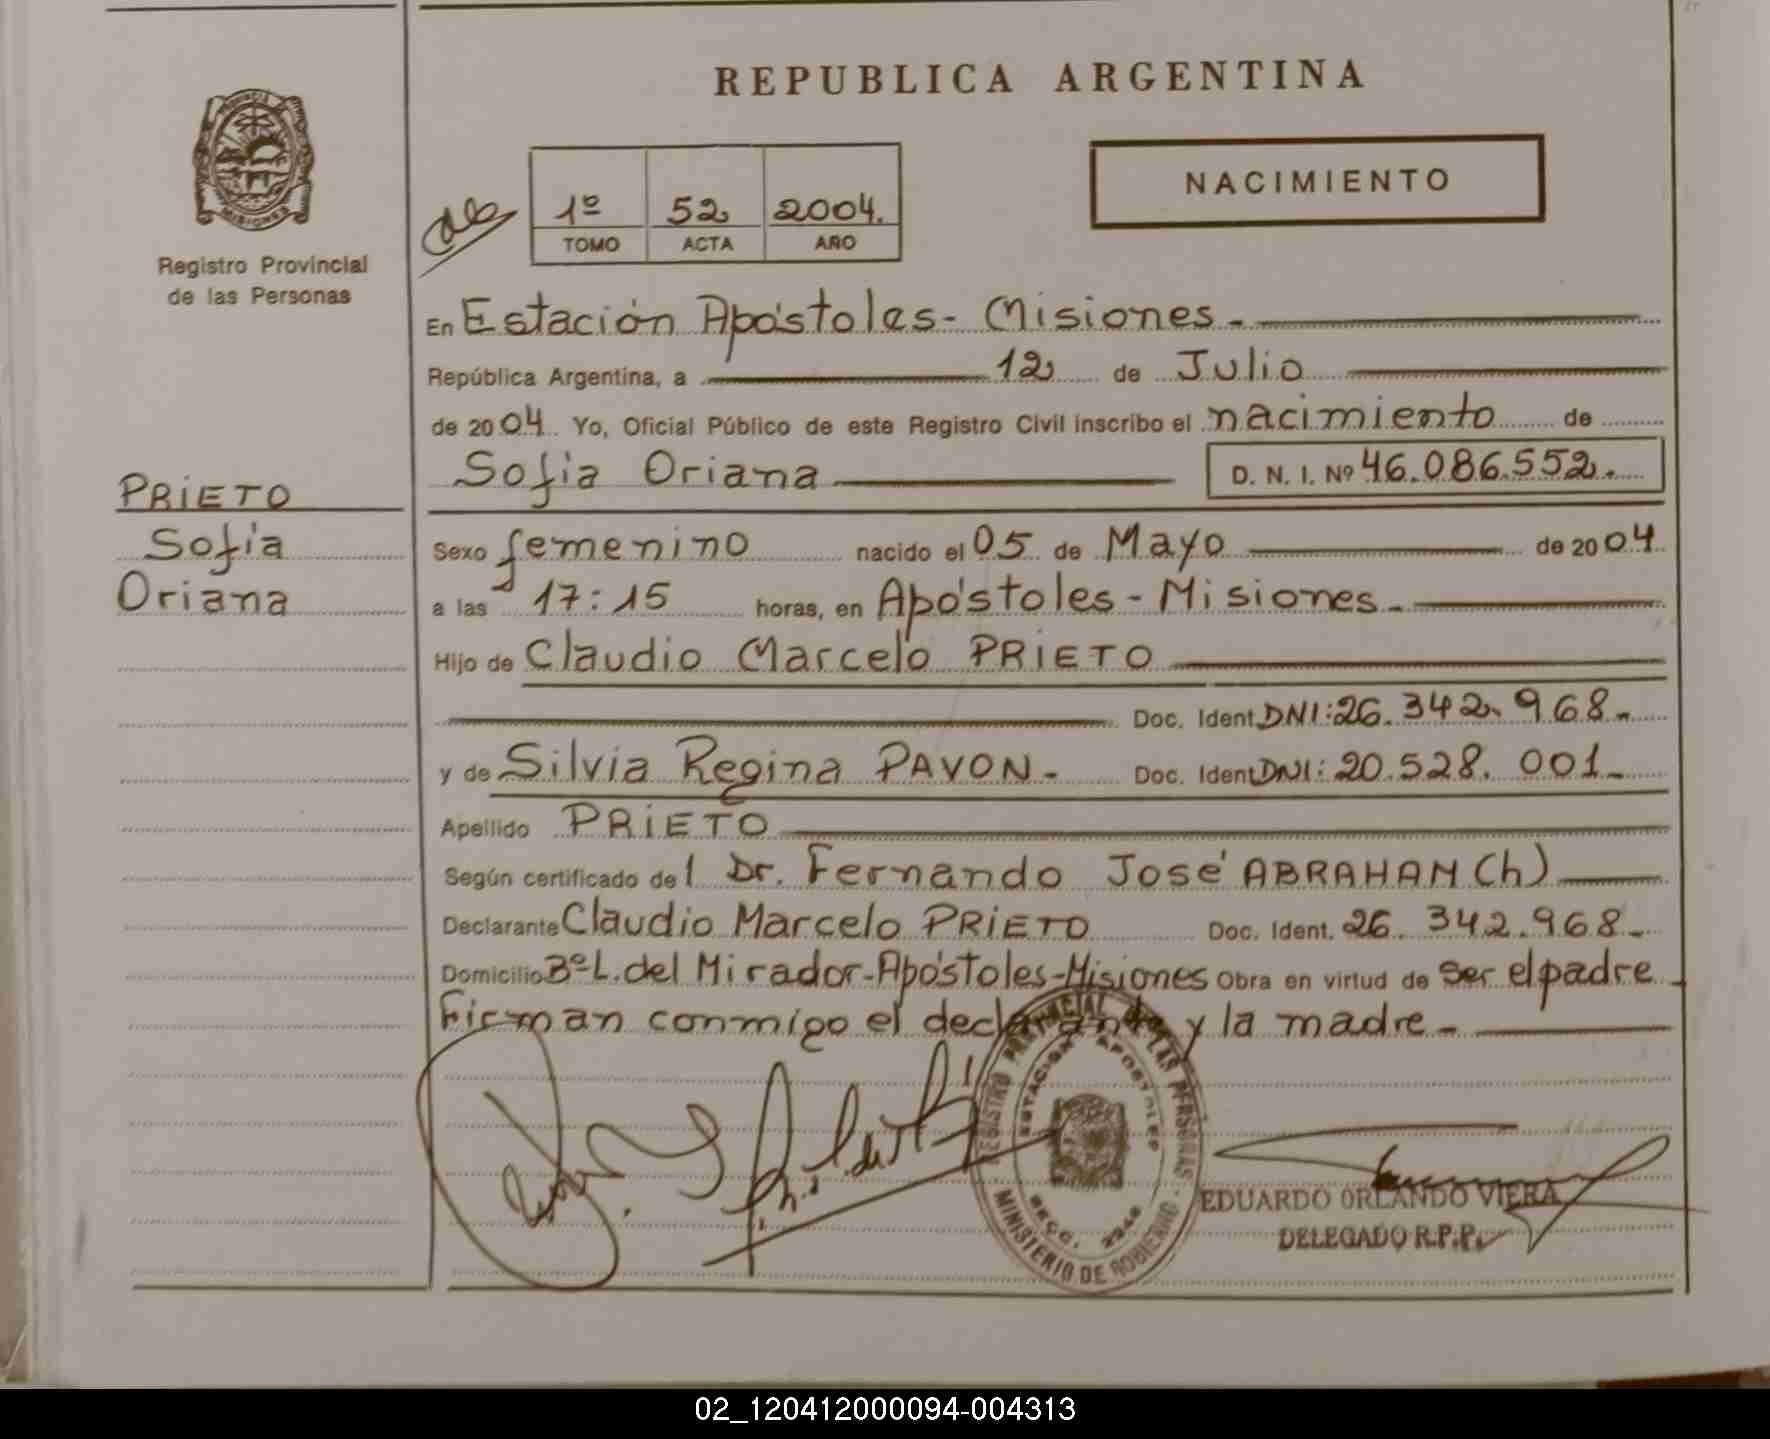 REPUBLICA ARGENTINA
NACIMIENTO
1º 52 2004.
TOMO ACTA AÑO
Registro Provincial
de las Personas
En Estación Apóstoles - Misiones -
República Argentina, a 12 de Julio
de 2004. Yo, Oficial Público de este Registro Civil inscribo el nacimiento de
Sofia Oriana D. N. I. Nº 46.086.552.
PRIETO
Sofia
Oriana
Sexo femenino nacido el 05 de Mayo de 2004
a las 17:15 horas, en Apóstoles - Misiones -
Hijo de Claudio Marcelo PRIETO
Doc. Ident. DNI: 26.342.968-
y de Silvia Regina PAVON - Doc. Ident. DNI: 20.528.001-
Apellido PRIETO
Según certificado del Dr. Fernando José ABRAHAM (h)
Declarante Claudio Marcelo PRIETO Doc. Ident. 26.342.968-
Domicilio Bº L. del Mirador - Apóstoles - Misiones Obra en virtud de ser el padre -
Firman conmigo el declarante y la madre -
REGISTRO PROVINCIAL DE LAS PERSONAS
ESTACION APOSTOLES
MINISTERIO DE GOBIERNO
EDUARDO ORLANDO VIERA
DELEGADO R.P.P.
02_120412000094-004313